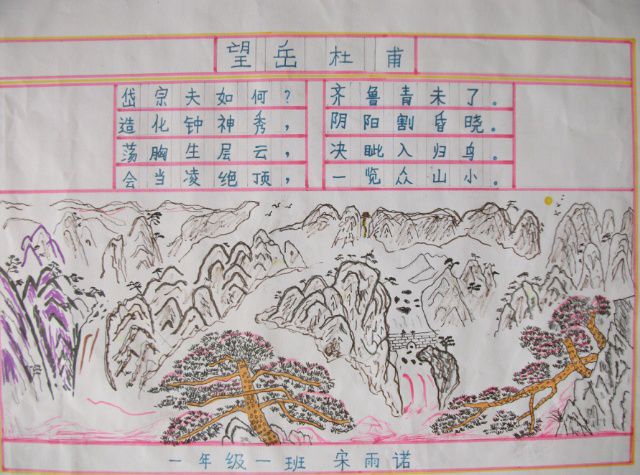 望岳 杜甫
岱宗夫如何？ 齐鲁青未了。
造化钟神秀， 阴阳割昏晓。
荡胸生层云， 决眦入归鸟。
会当凌绝顶， 一览众山小。
一年级一班 宋雨诺